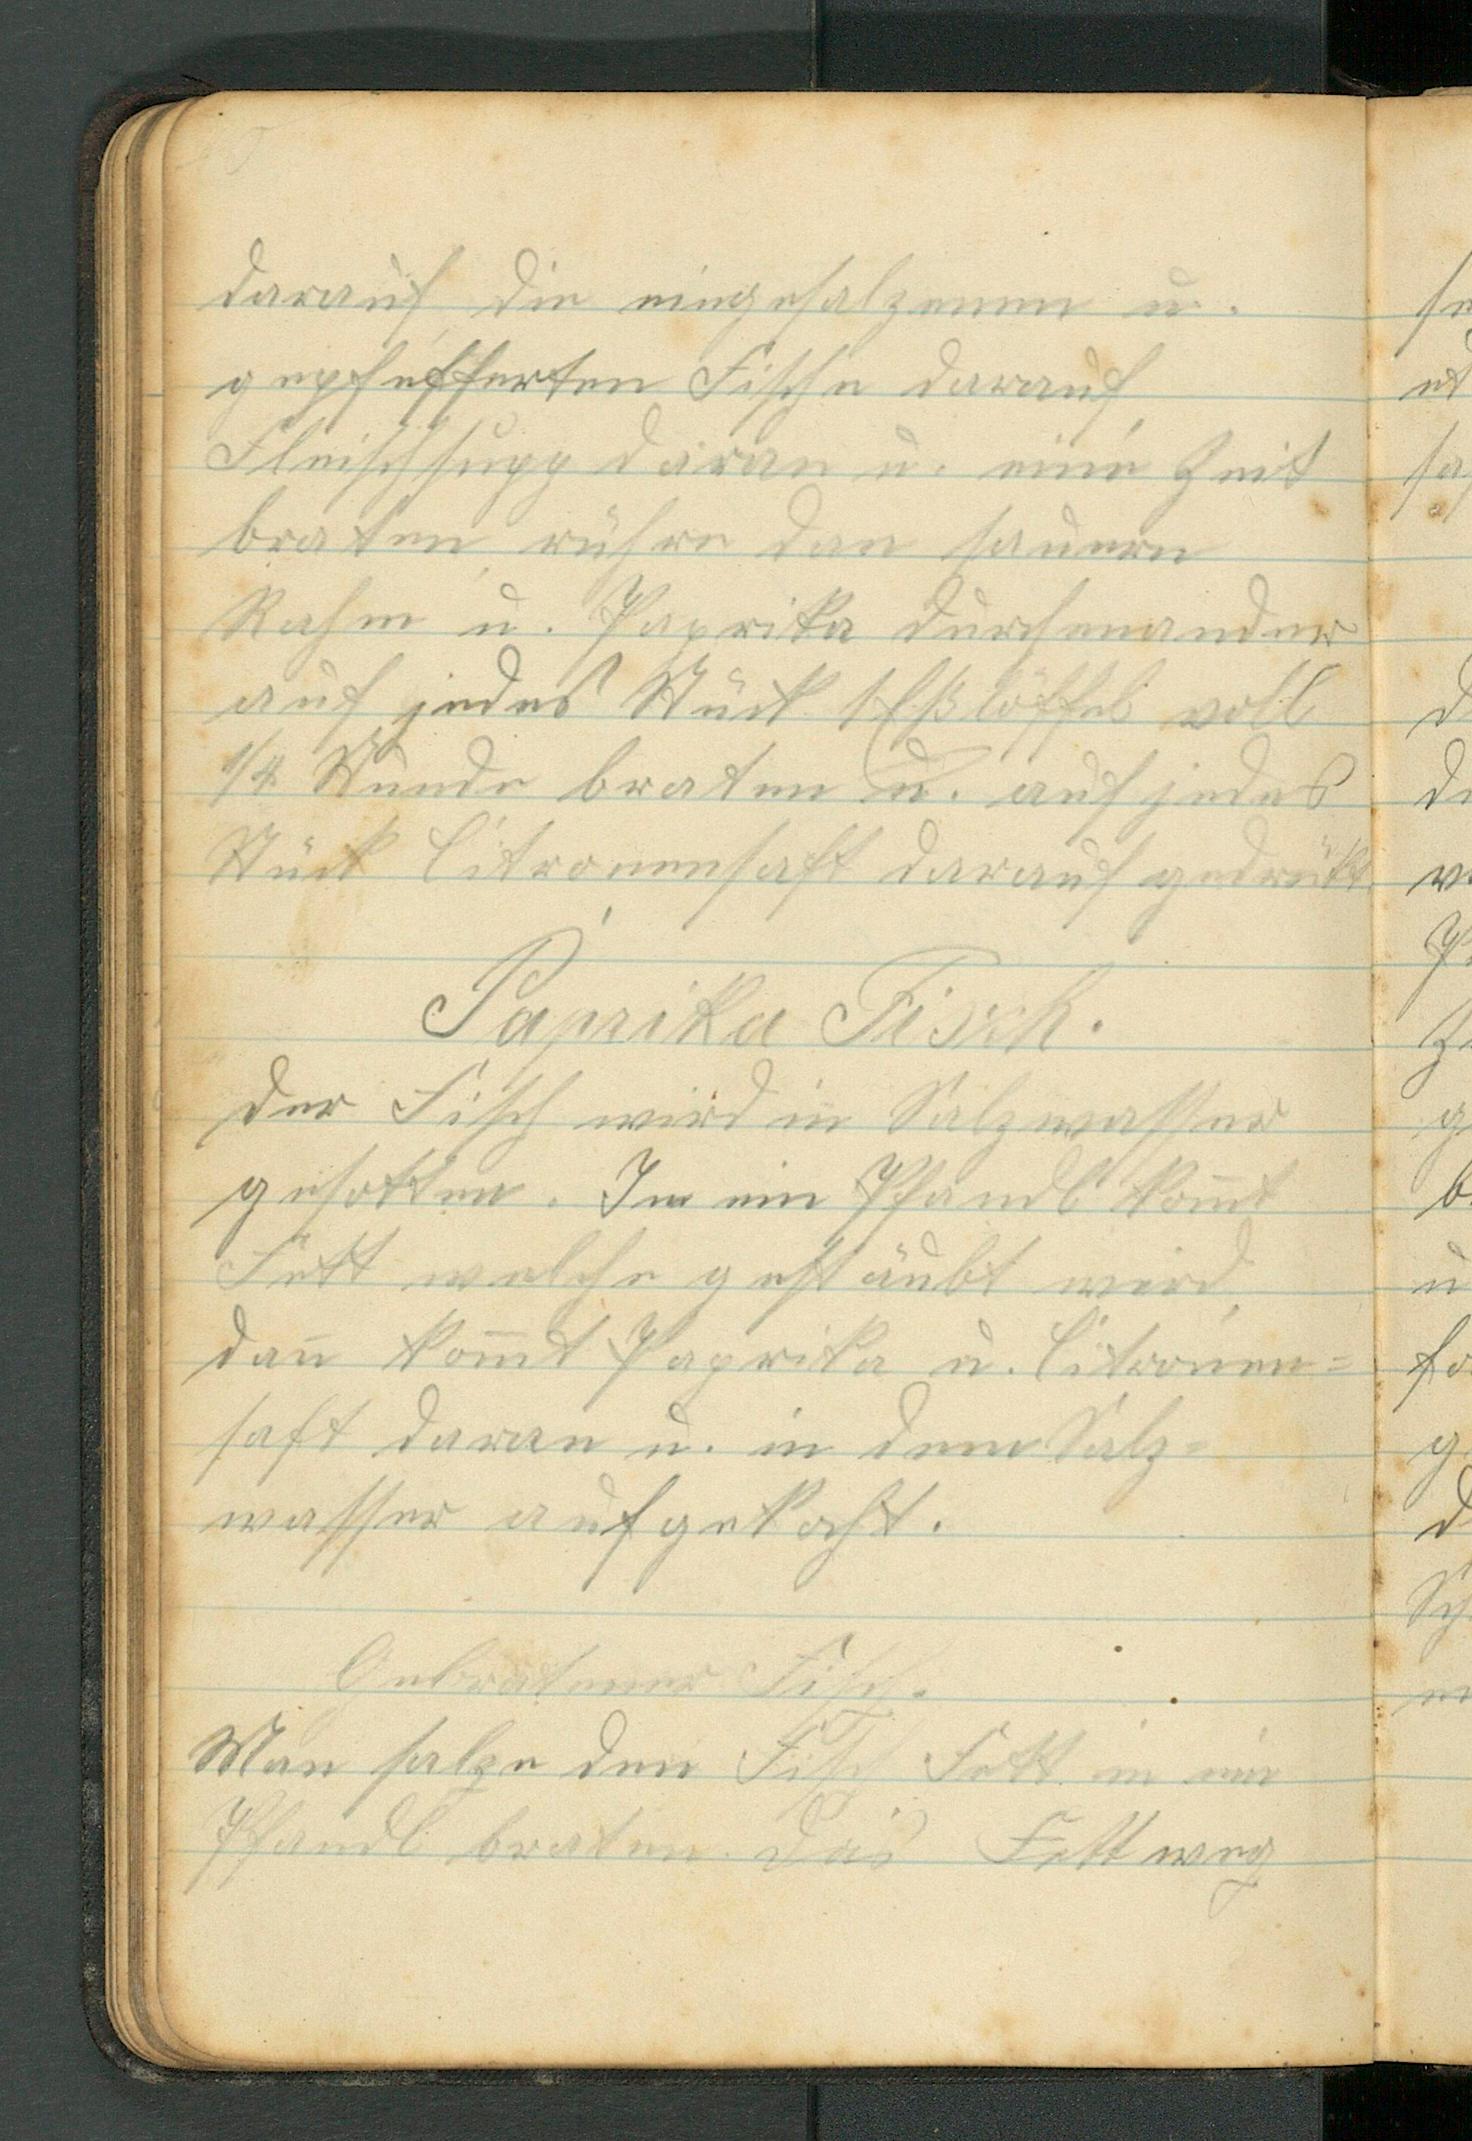 darauf die eingesalzenen u.
gepfefferten Fische darauf
Fleischsupp daran u. eine Zeit
braten, rühre dan sauern
Rahm u. Paprika durchenander
auf jedes Stück 1 Eßlöffel voll
1/4 Stunde braten u. auf jedes
Stück Citronensaft darauf gedrückt.
Paprika Fisch.
Der Fisch wird in Salzwasser
gesotten. In ein Pfandl kom̄t
Fett welche gestäubt wird,
dan̄ kom̄t Paprika u. Citronen=
saft daran u. in dem Salz=
wasser aufgekocht.
Gebratener Fisch.
Man salze den Fisch Fett in ein
Pfandl braten das Fett weg